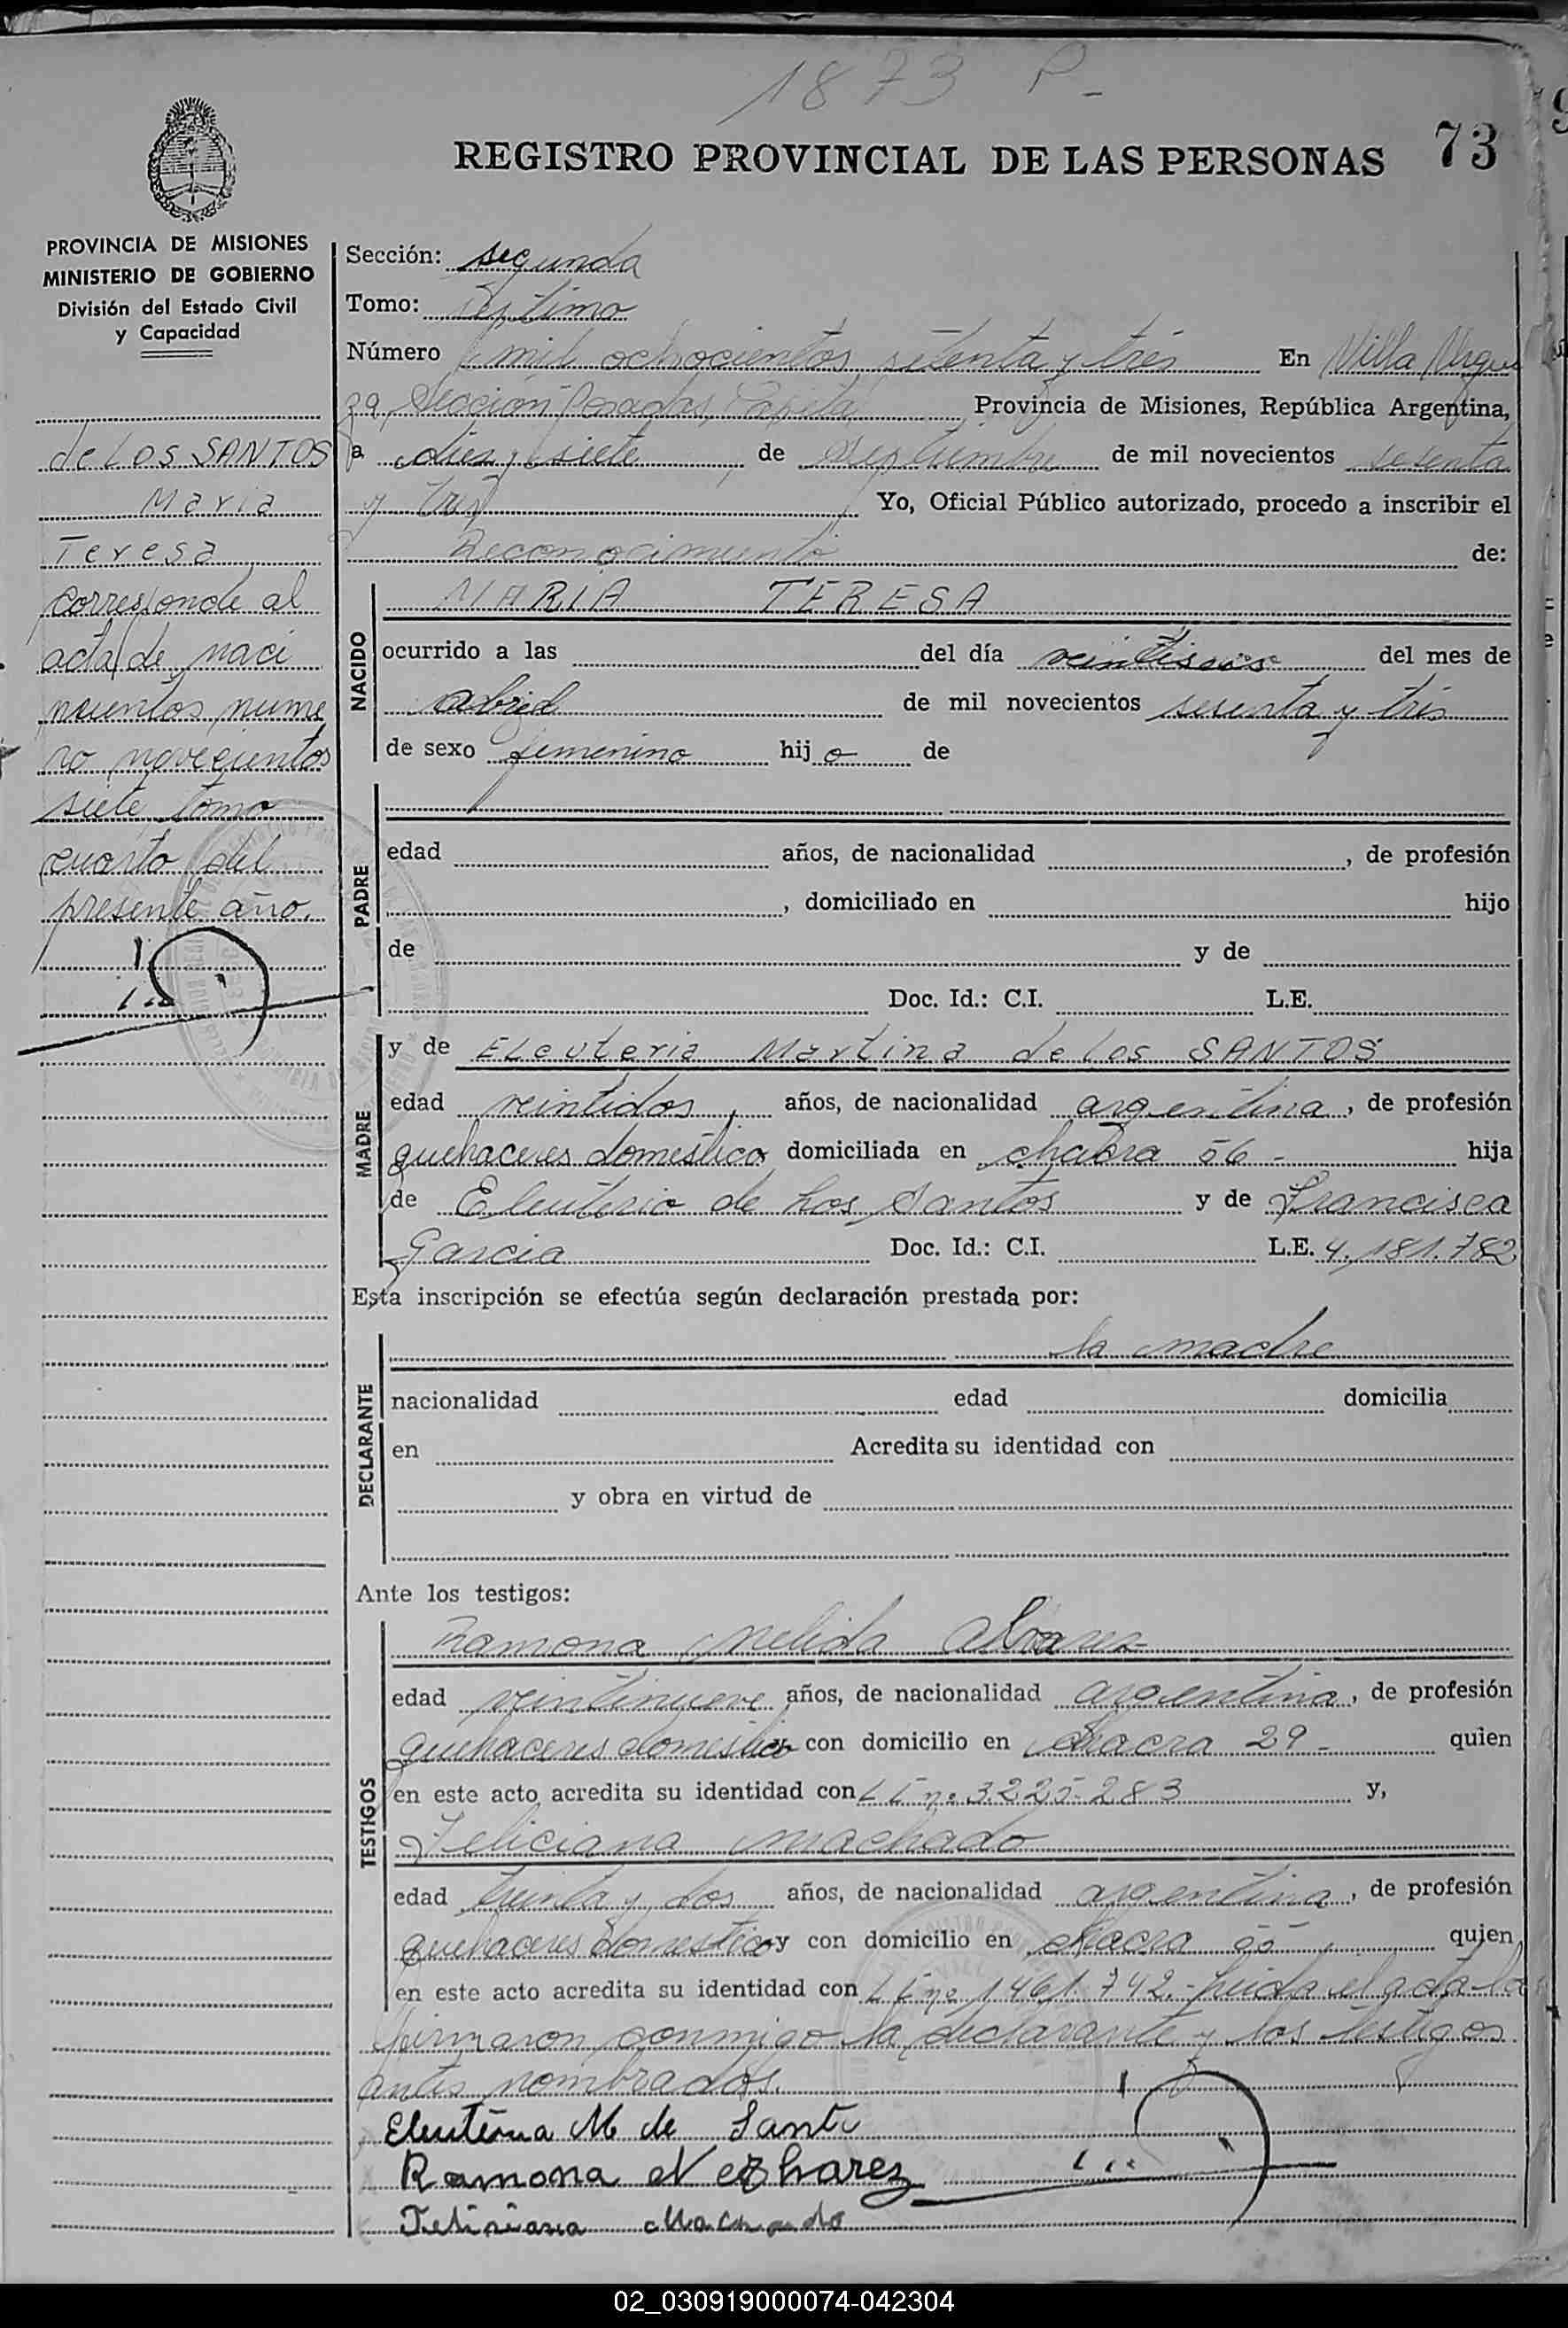 1873 P-
REGISTRO PROVINCIAL DE LAS PERSONAS 73
PROVINCIA DE MISIONES
MINISTERIO DE GOBIERNO
División del Estado Civil
y Capacidad
de Los SANTOS
Maria
Teresa
corresponde al
acta de naci
mientos nume
ro novecientos
siete tomo
cuarto del
presente año.
Sección: segunda
Tomo: Septimo
Número mil ochocientos setenta y tres En Villa Urqui
za, Sección Posadas, Capital Provincia de Misiones, República Argentina,
a diez y siete de Septiembre de mil novecientos sesenta
y tres Yo, Oficial Público autorizado, procedo a inscribir el
Reconocimiento de:
NACIDO
MARIA TERESA
ocurrido a las del día veintiseis del mes de
abril de mil novecientos sesenta y tres
de sexo femenino hij a de
PADRE
edad años, de nacionalidad , de profesión
, domiciliado en hijo
de y de
Doc. Id.: C.I. L.E.
MADRE
y de ELeuteria Martina de Los SANTOS
edad veintidos, años, de nacionalidad argentina, de profesión
quehaceres domestico domiciliada en chacra 56 - hija
de Eleuterio de Los Santos y de Francisca
Garcia Doc. Id.: C.I. L.E. 4.181.782
Esta inscripción se efectúa según declaración prestada por:
DECLARANTE
la madre
nacionalidad edad domicilia
en Acredita su identidad con
y obra en virtud de
Ante los testigos:
TESTIGOS
Ramona Nelida Alvarez
edad veintinueve años, de nacionalidad argentina, de profesión
quehaceres domestico con domicilio en chacra 29 - quien
en este acto acredita su identidad con L E nº 3.225.283 y,
Feliciana Machado
edad treinta y dos años, de nacionalidad argentina, de profesión
quehaceres domestico y con domicilio en chacra 55 quien
en este acto acredita su identidad con L E nº 1461.742.- Leida el acta la
firmaron conmigo la declarante y los testigos
antes nombrados.
Eleuteria M de Santo
Ramona N Alvarez
Feliciana Machado
02_030919000074-042304